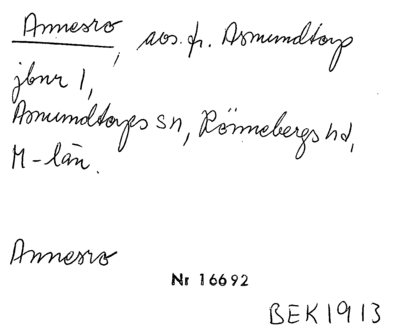 Annesro, avs. fr. Asmundtorp
jbnr 1,
Asmundtorps sn, Rönnebergs hd,
M-län.
Annesro
Nr 16692
BEK1913